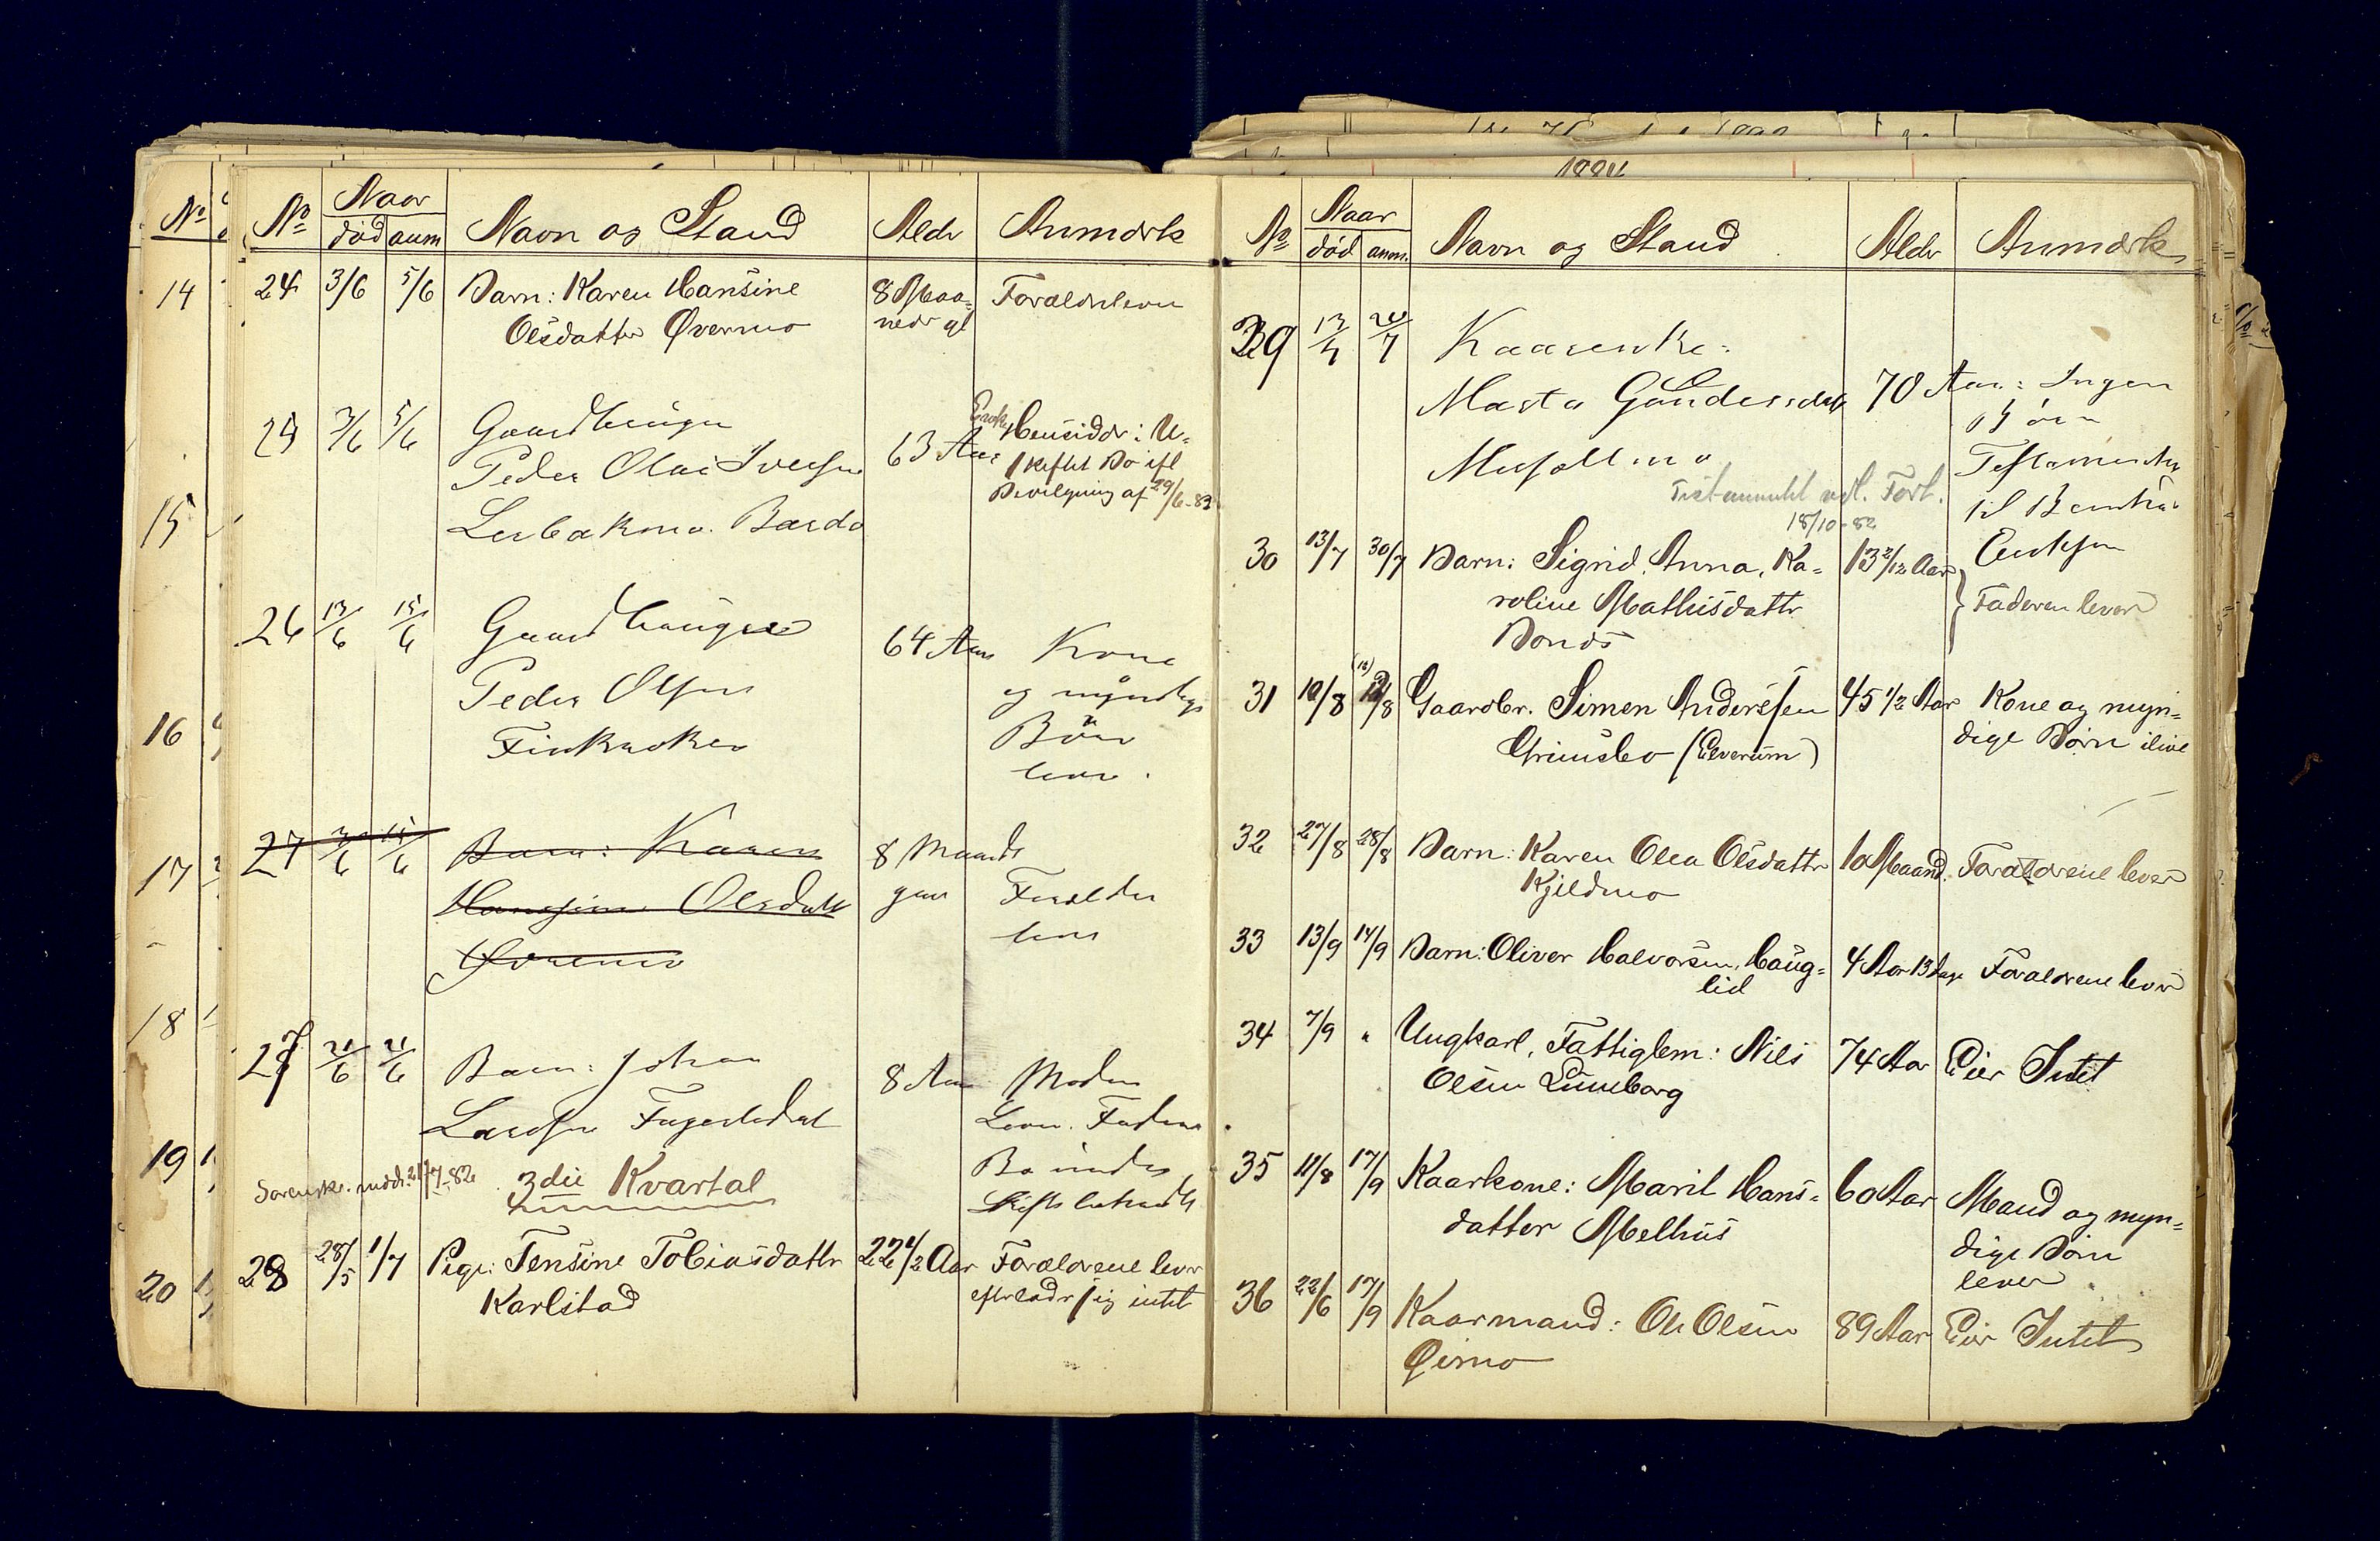 No
14
15
16
17
18
19
20
No Naar Navn og Stand Alder Anmærk
død anm
24 3/6 5/6 Barn: Karen Hansine 8 Maa=
Olsdatter Øvermo neder gl Forældr leve
25 3/6 5/6 Gaardbruger
Peder Olai Iversen 63 Aar
Bardo
Enke hensidder i U=
skiftet Bo ifl
Bevilgning af 29/6-83
26 13/6 15/6 Gaardbruger
Peder Olsen 64 Aar Kone
og myndige
Finkroken Børn
leve.
27 3/6 15/6 Barn: Karen 8 Maaneder
Hansine Olsdatt Forældre
Øvermo leve
27 21/6 21/6 Barn: Johan
Larsen Fagerlidal 8 Aar Moder
Lever. Faderens
Bo under
Skiftebehandl
Sorenskr. medd. 21/7-82 3die Kvartal
28 28/5 1/7 Pige: Jensine Tobiasdattr 22 1/2 Aar Forældrene lever
Karlstad efterlader sig intet
1884
No Naar Navn og Stand Alder Anmærk
død anm.
29 13/7 20/7 Kaarenke:
Marta Gundersdat 70 Aar: Ingen
Børn
Testamentet
Testamentet vdl. Forl.
18/10-82
til Berntha
Eriksen
30 13/7 30/7 Barn: Sigrid, Anna, Ka= 13 2/12 Aar
roline Mathisdattr Faderen lever
Bonds
31 10/8 12/8 Gaardbr. Simen Anderssen 45 1/2 Aar Kone og myn=
Grimsbo (Elverum) dige Børn ilive
32 27/8 28/8 Barn: Karen Olea Olsdattr 10 Maand. Forældrene lever
Kjeldmo
33 13/9 14/9 Barn: Oliver Halvorsen, Haug= 4 Aar 13 dage Forældrene lever
lid
34 7/9 " Ungkarl, Fattiglem: Nils 74 Aar Eier Intet
Olsen Luneborg
35 11/8 17/9 Kaarkone: Marit Hans= 60 Aar Mand og myn=
datter Melhus dige Børn
lever
36 22/6 17/9 Kaarmand: Ole Olsen 89 Aar Eier Intet
Øimo